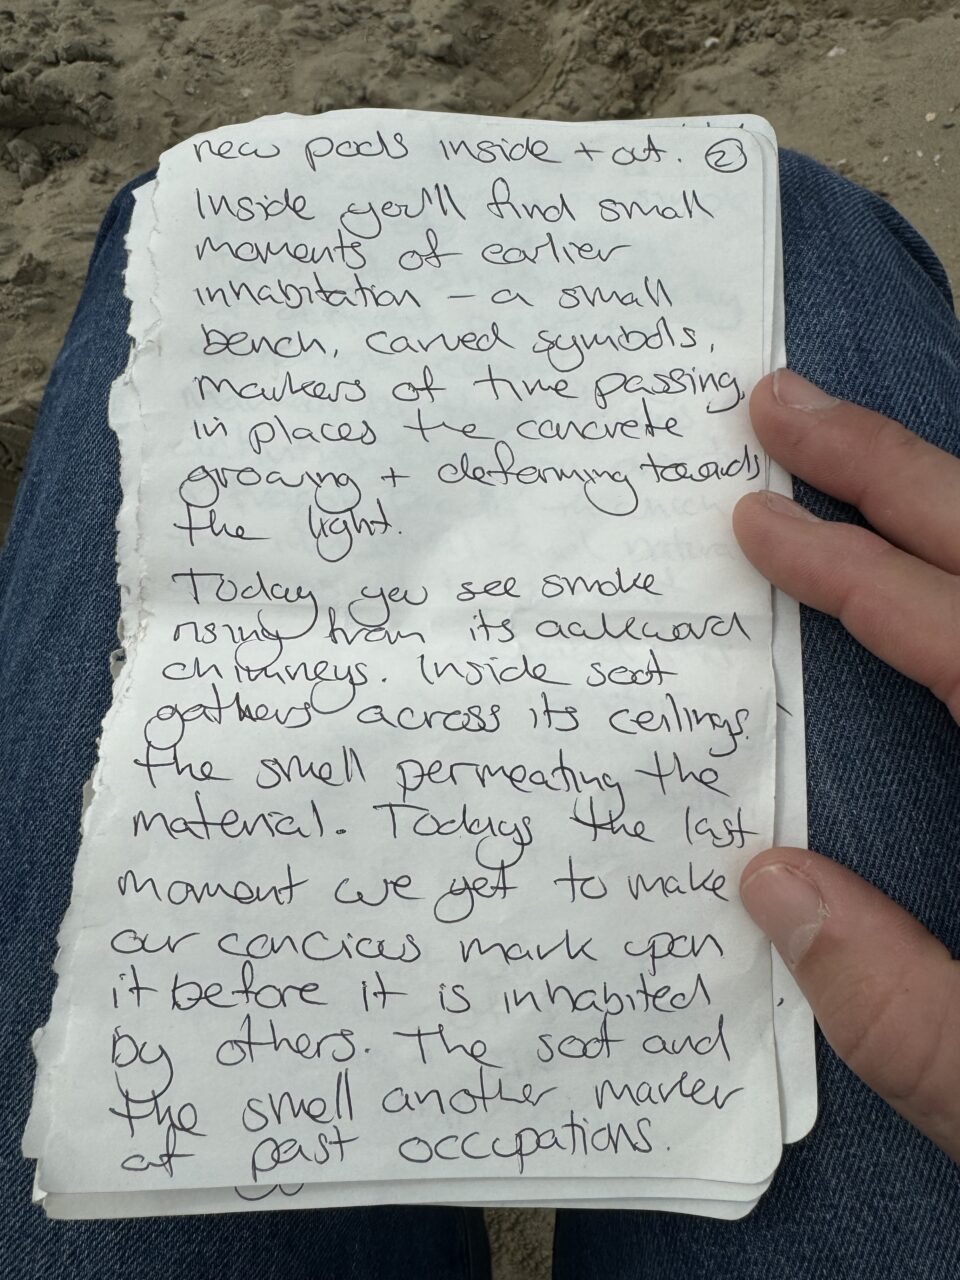 new pods inside + out. ②
Inside you'll find small
moments of earlier
inhabitation – a small
bench, carved symbols,
markers of time passing,
in places the concrete
growing + deforming towards
the light.
Today you see smoke
rising from its awkward
chimneys. Inside soot
gathers across its ceilings.
The smell permeating the
material. Todays the last
moment we get to make
our concious mark upon
it before it is inhabited
by others. The soot and
the smell another marker
of past occupations.